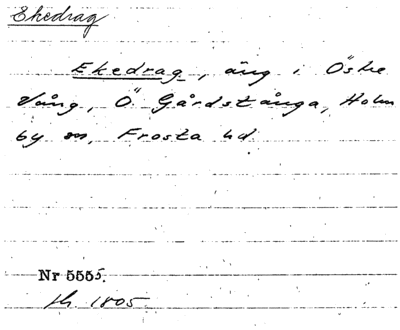 Ekedrag
Ekedrag, äng i Östre
Vång, Ö Gårdstånga, Holm
by sn, Frosta hd
Nr 5555.
1805